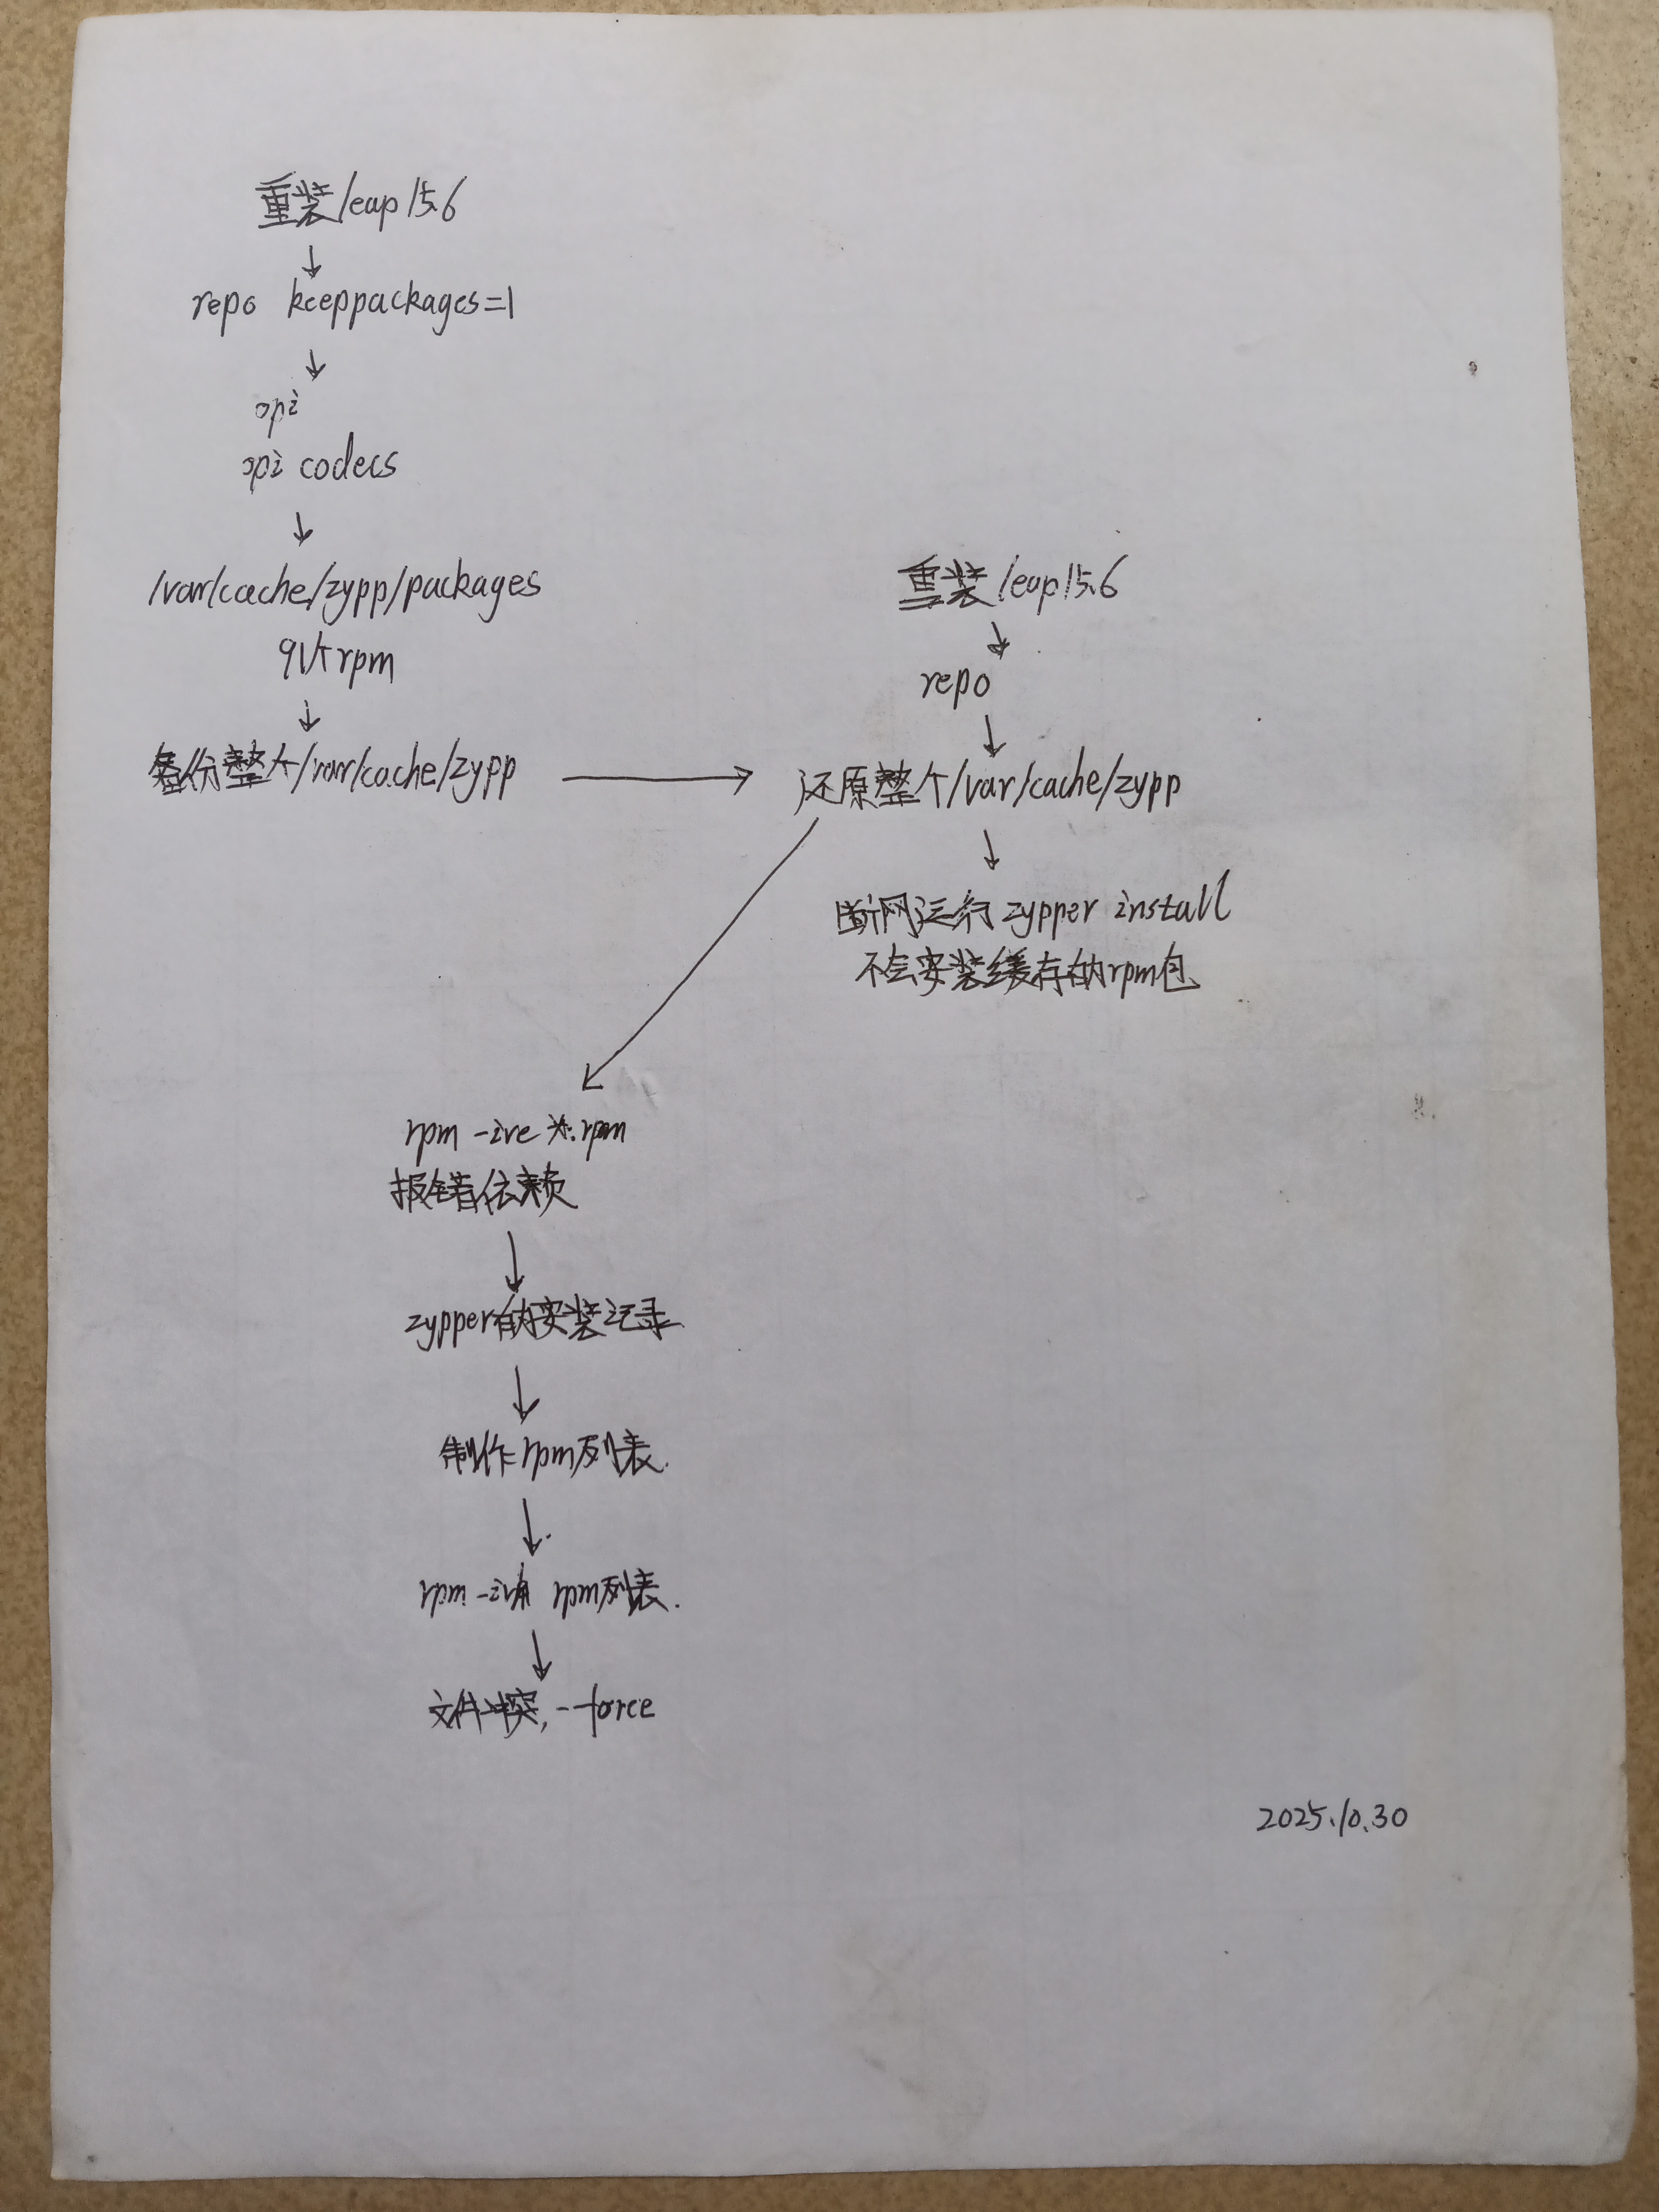 重装leap15.6
↓
repo keeppackages=1
↓
opi
opi codecs
↓
/var/cache/zypp/packages
91个rpm
↓
备份整个/var/cache/zypp →
重装leap15.6
↓
repo
↓
还原整个/var/cache/zypp
↓
断网运行zypper install
不会安装缓存的rpm包
rpm -ive *.rpm
报错依赖
↓
zypper的安装记录
↓
制作rpm列表.
↓
rpm rpm列表.
↓
文件冲突, --force
2025.10.30